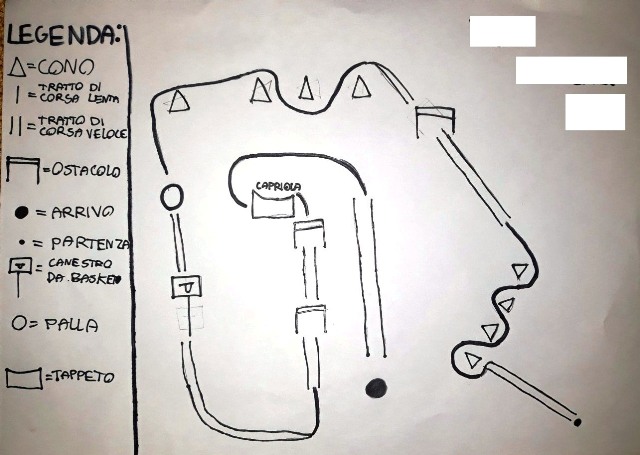 LEGENDA:
=CONO
= TRATTO DI
CORSA LENTA
= TRATTO DI
CORSA VELOCE
=OSTACOLO
= ARRIVO
= PARTENZA
= CANESTRO
DA BASKET
= PALLA
=TAPPETO
CAPRIOLA